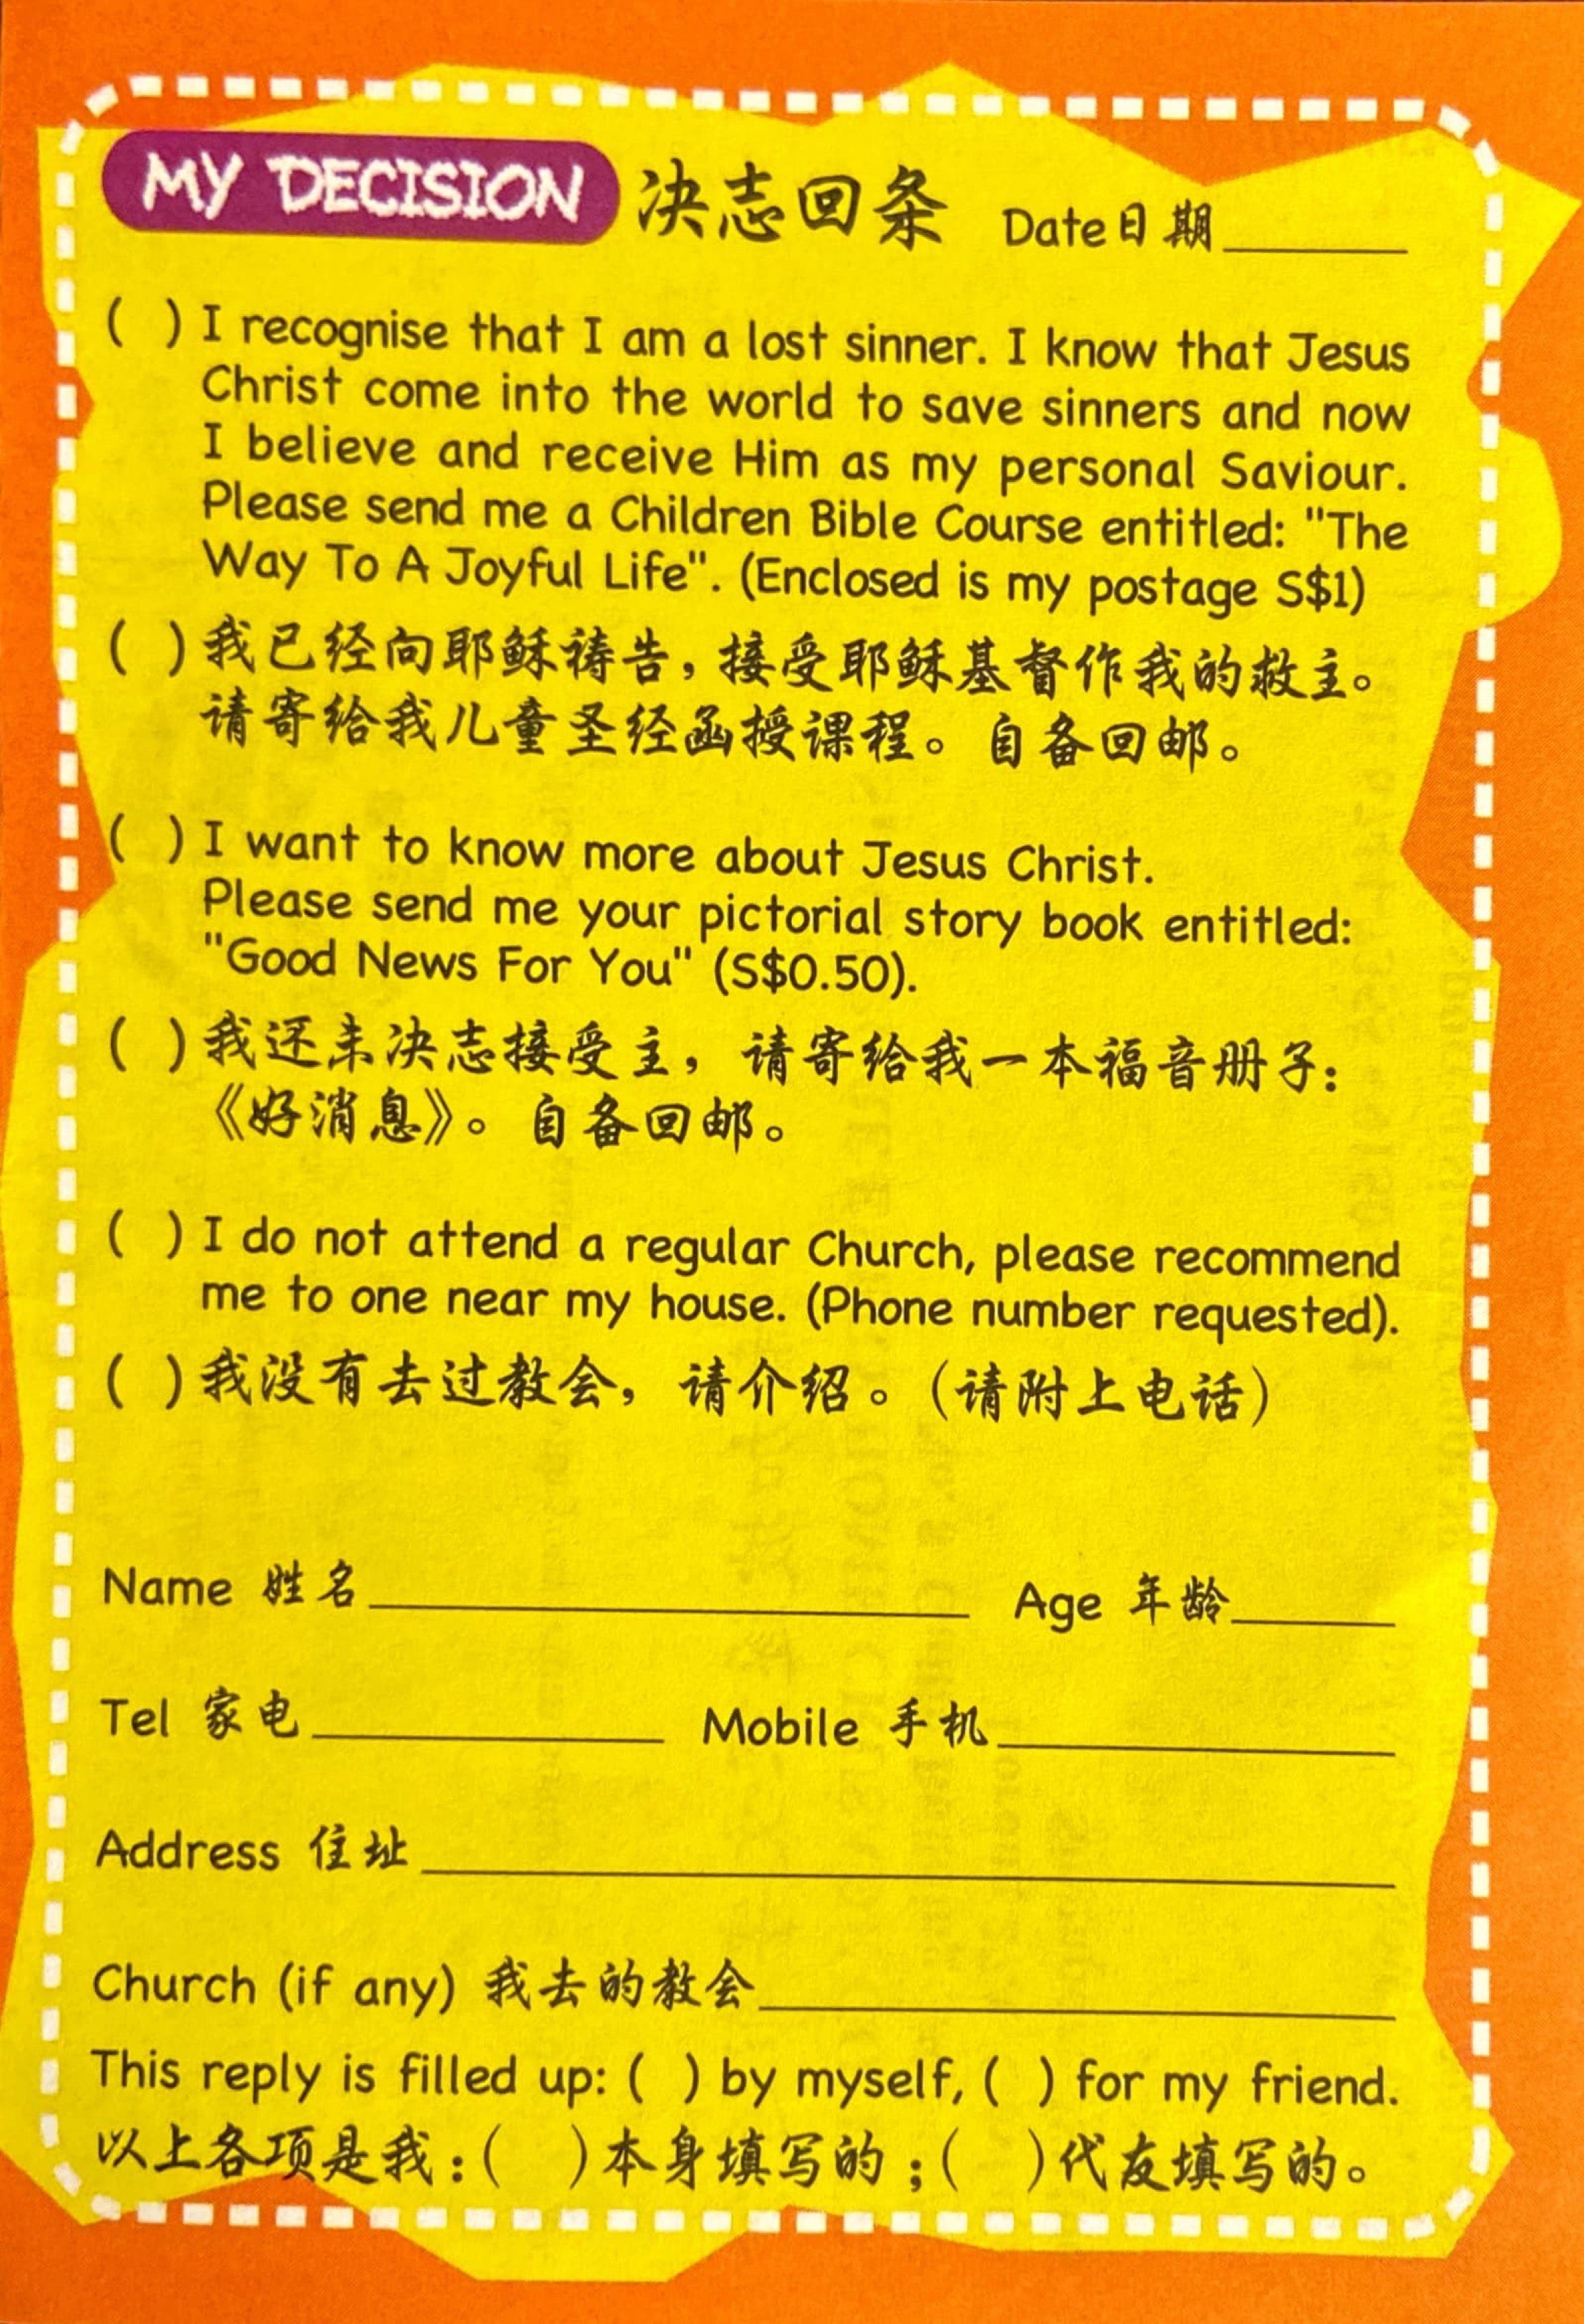 MY DECISION 决志回条 Date日期______
( ) I recognise that I am a lost sinner. I know that Jesus
Christ come into the world to save sinners and now
I believe and receive Him as my personal Saviour.
Please send me a Children Bible Course entitled: "The
Way To A Joyful Life". (Enclosed is my postage S$1)
( ) 我已经向耶稣祷告，接受耶稣基督作我的救主。
请寄给我儿童圣经函授课程。自备回邮。
( ) I want to know more about Jesus Christ.
Please send me your pictorial story book entitled:
"Good News For You" (S$0.50).
( ) 我还未决志接受主，请寄给我一本福音册子：
《好消息》。自备回邮。
( ) I do not attend a regular Church, please recommend
me to one near my house. (Phone number requested).
( ) 我没有去过教会，请介绍。（请附上电话）
Name 姓名______ Age 年龄______
Tel 家电______ Mobile 手机______
Address 住址______
Church (if any) 我去的教会______
This reply is filled up: ( ) by myself, ( ) for my friend.
以上各项是我：( )本身填写的；( )代友填写的。